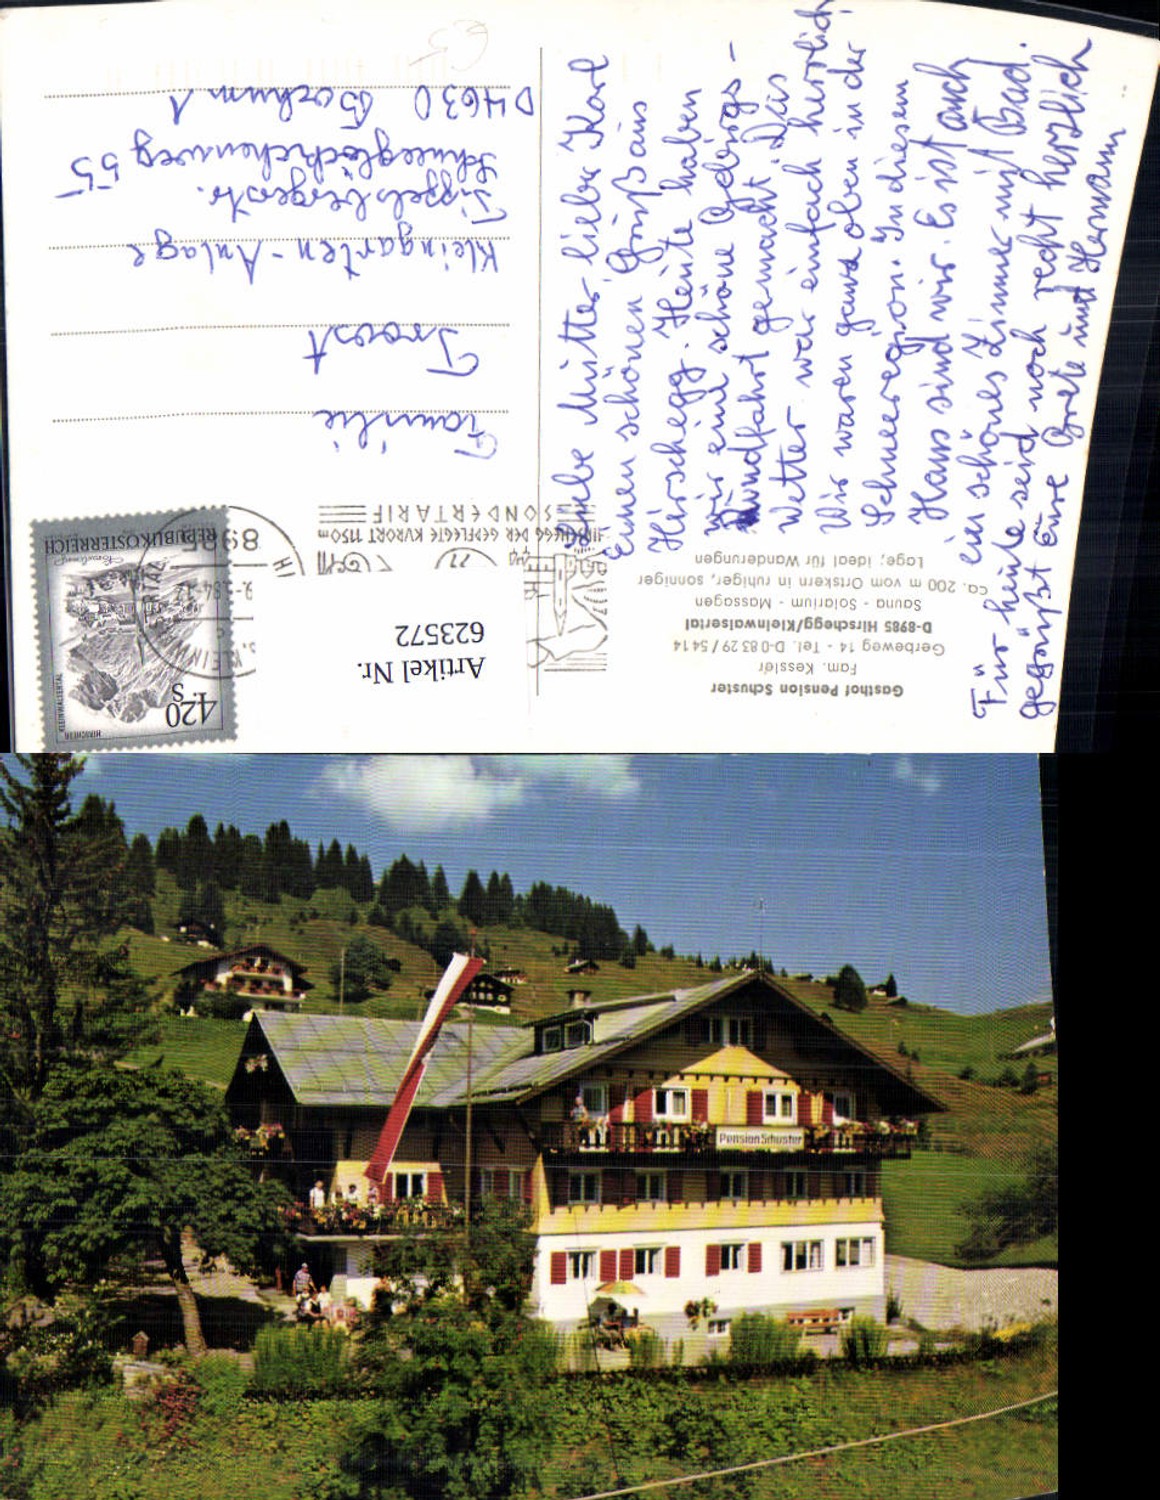 Liebe Mutter, lieber Karl
Einen schönen Gruß aus
Hirschegg. Heute haben
wir eine schöne Gebirgs-
Rundfahrt gemacht. Das
Wetter war einfach herrlich,
Wir waren ganz oben in der
Schneeregion. In diesem
Haus sind wir. Es ist auch
ein schönes Zimmer mit Bad.
Für heute seid noch recht herzlich
gegrüßt Eure Grete und Hermann
Familie
Troost
Kleingarten-Anlage
Tippelsbergerstr.
Schneeglöckchenweg 55
D 4630 Bochum 1
Gasthof Pension Schuster
Fam. Kessler
Gerbeweg 14 - Tel. D-0 83 29 / 54 14
D-8985 Hirschegg/Kleinwalsertal
Sauna - Solarium - Massagen
ca. 200 m vom Ortskern in ruhiger, sonniger
Lage; ideal für Wanderungen
Artikel Nr.
623572
HIRSCHEGG DER GEPFLEGTE KURORT 1150m
SONDERTARIF
8985
4.20
S
HIRSCHEGG
KLEINWALSERTAL
REPUBLIK ÖSTERREICH
Pension Schuster